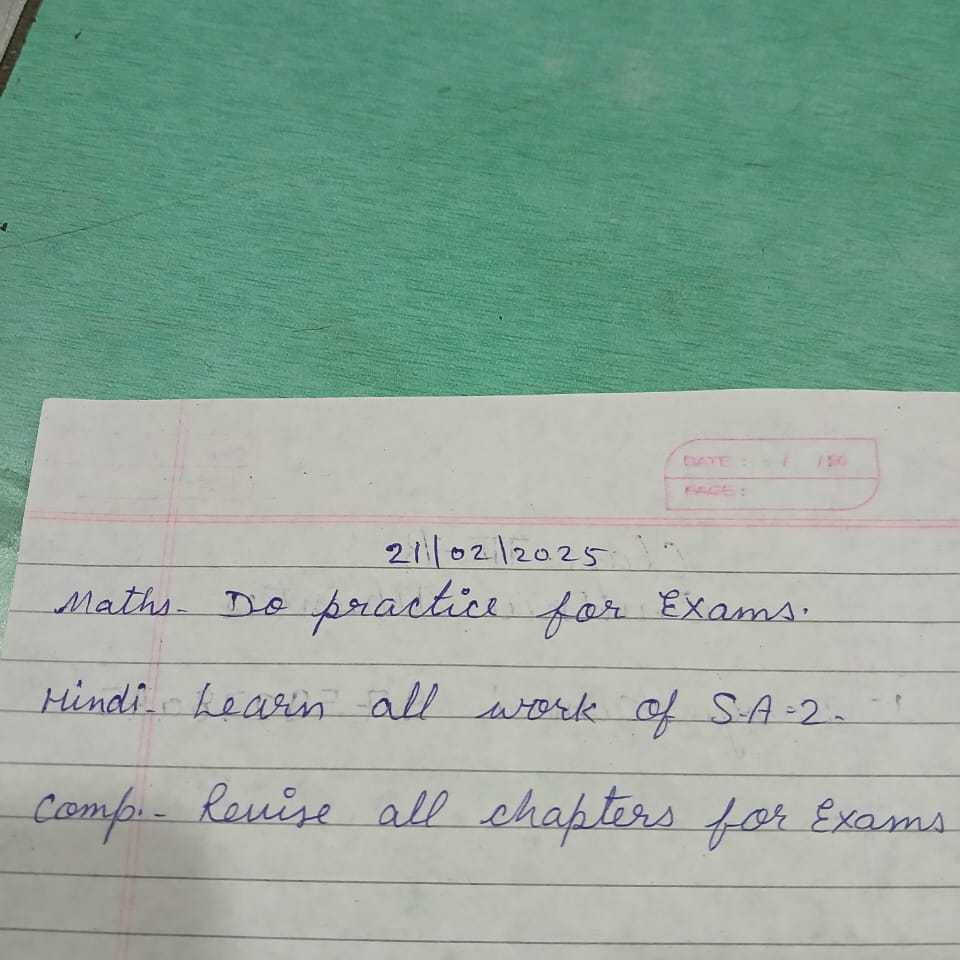 DATE: / /20
PAGE:
21/02/2025
Maths- Do practice for Exams.
Hindi- Learn all work of S-A-2.
Comp.- Revise all chapters for Exams